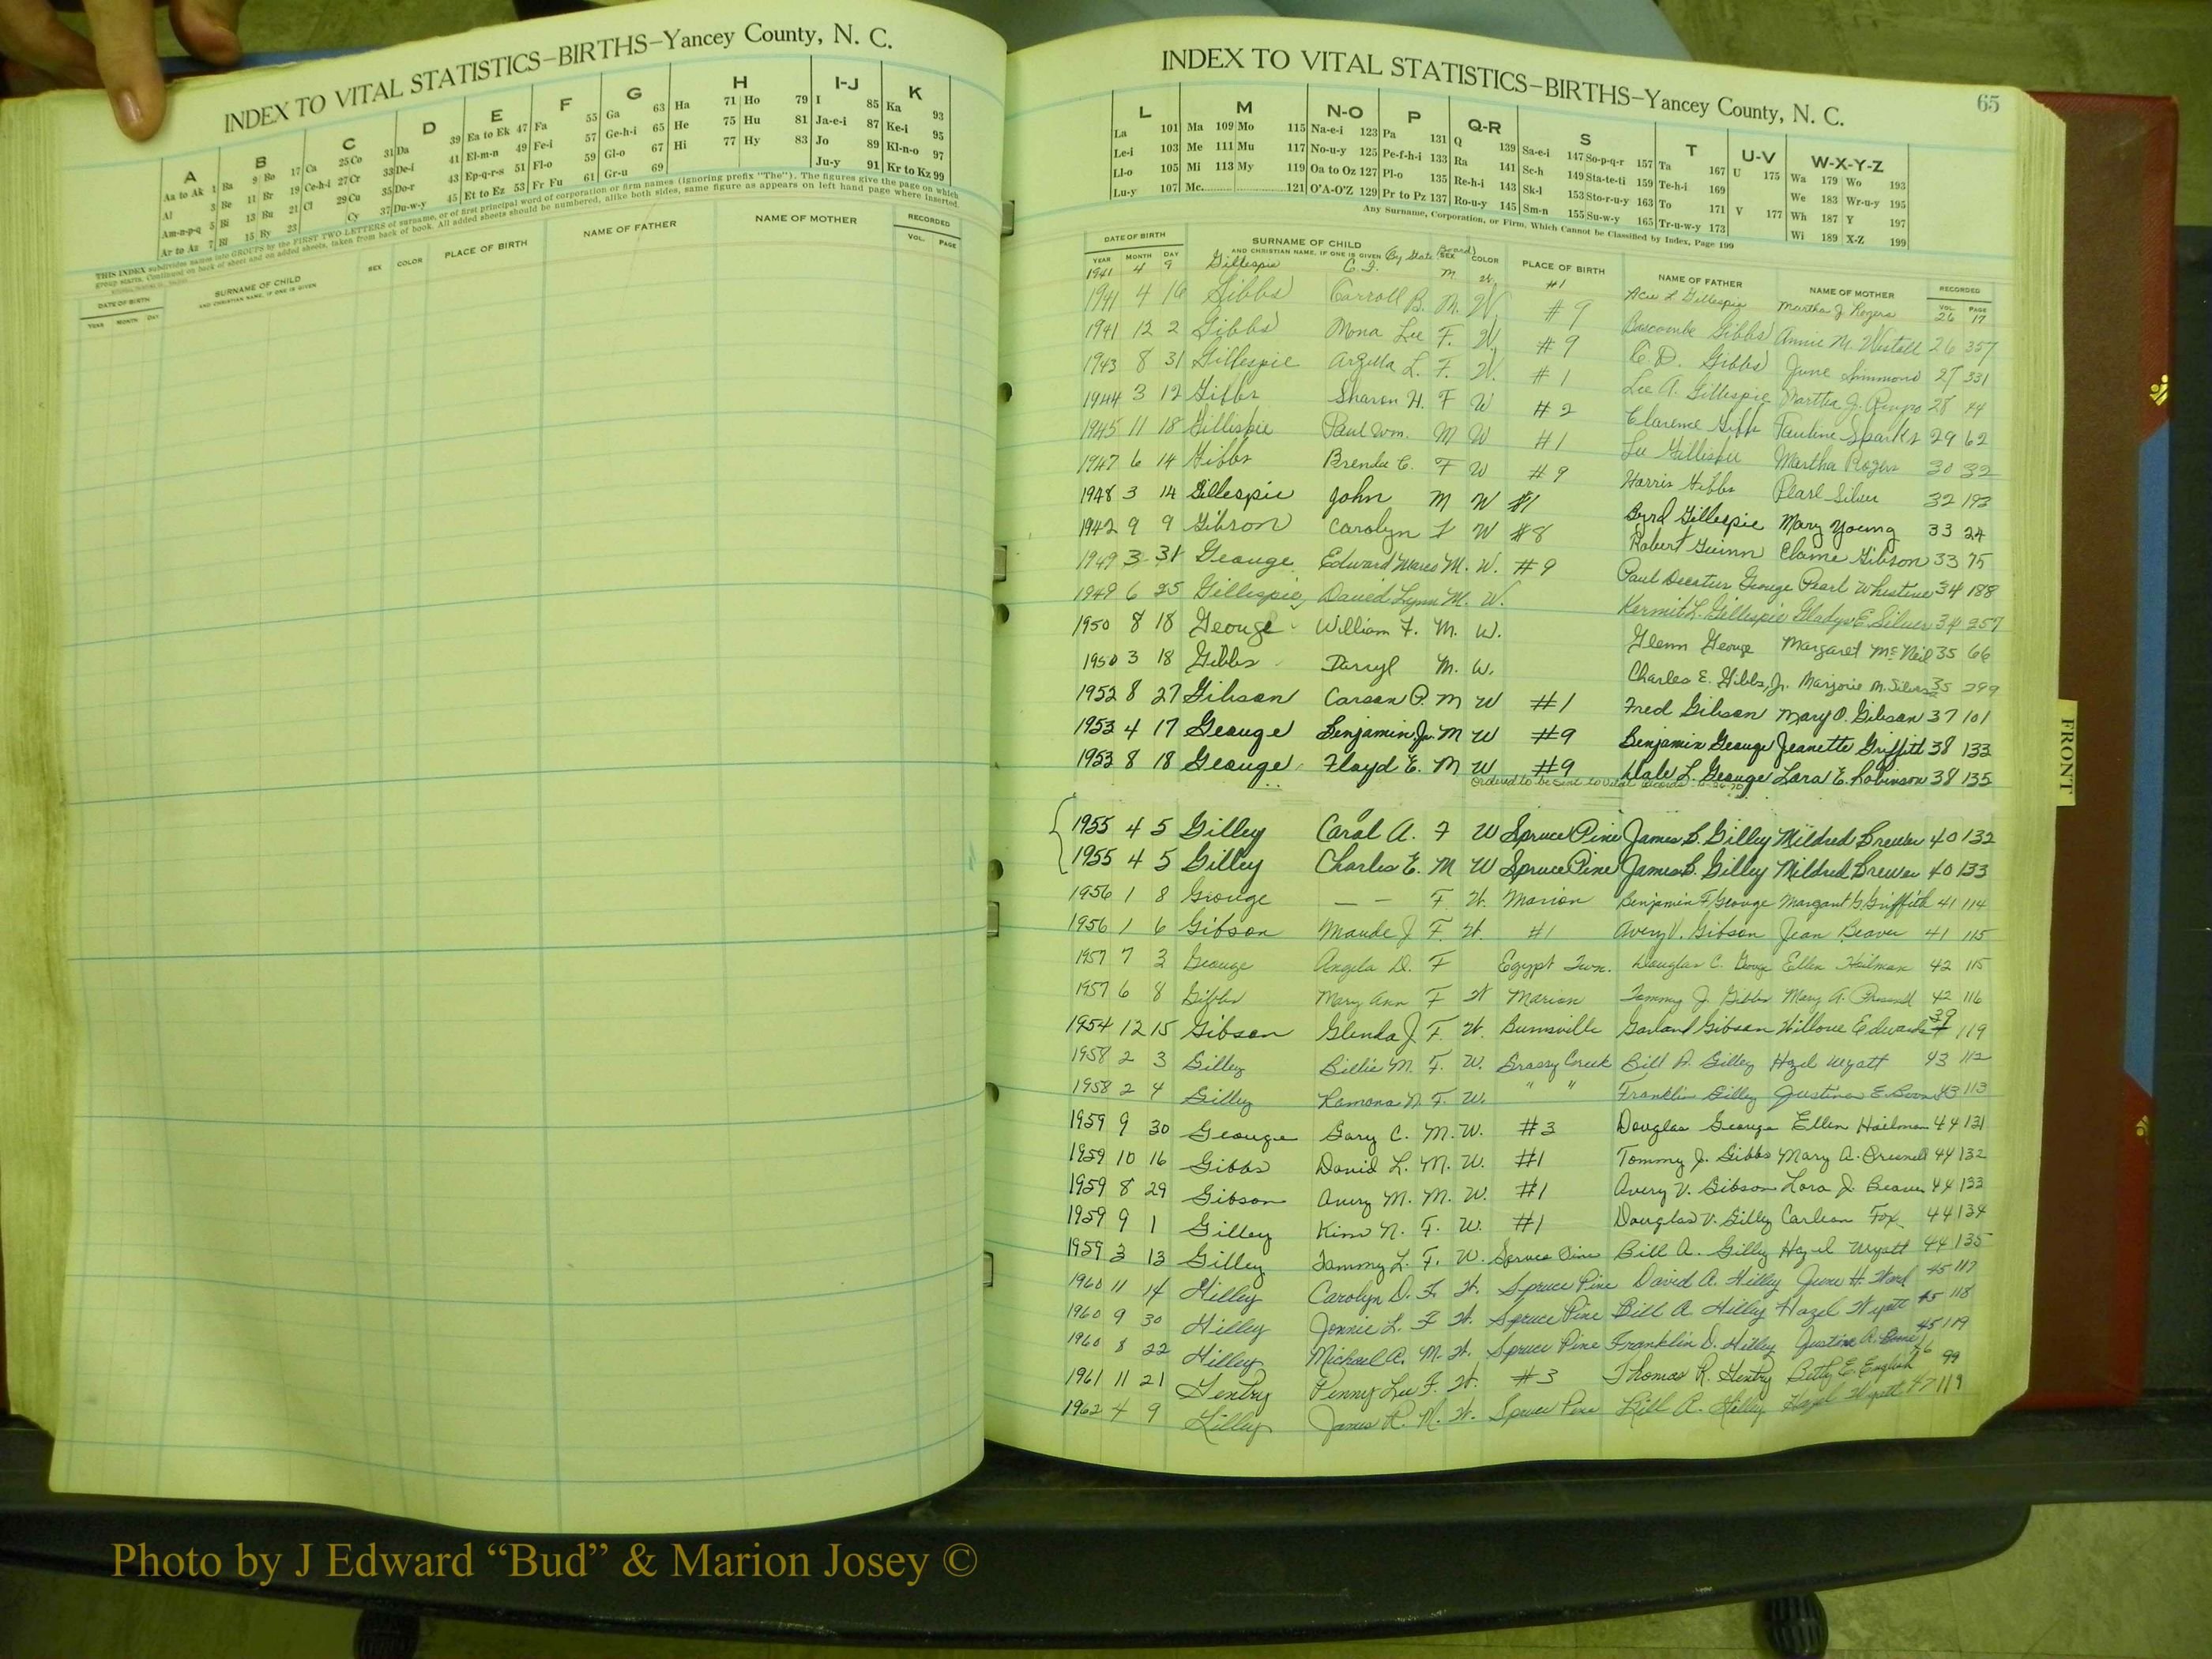 INDEX TO VITAL STATISTICS—BIRTHS—Yancey County, N. C.
A B C D E F G H I-J K
Aa to Ak 1 Ba 9 Bo 17 Ca 25 Co 31 Da 39 Ea to Ek 47 Fa 55 Ga 63 Ha 71 Ho 79 I 85 Ka 93
Al 3 Be 11 Br 19 Ce-h-i 27 Cr 33 De-i 41 El-m-n 49 Fe-i 57 Ge-h-i 65 He 75 Hu 81 Ja-e-i 87 Ke-i 95
Am-n-p-q 5 Bi 13 Bu 21 Cl 29 Cu 35 Do-r 43 Ep-q-r-s 51 Fl-o 59 Gl-o 67 Hi 77 Hy 83 Jo 89 Kl-n-o 97
Ar to Az 7 Bl 15 By 23 Cy 37 Du-w-y 45 Et to Ez 53 Fr Fu 61 Gr-u 69 Ju-y 91 Kr to Kz 99
THIS INDEX subdivides names into GROUPS by the FIRST TWO LETTERS of surname, or of first principal word of corporation or firm names (ignoring prefix "The"). The figures give the page on which
group starts. Continued on back of sheet and on added sheets, taken from back of book. All added sheets should be numbered, alike both sides, same figure as appears on left hand page where inserted.
DATE OF BIRTH SURNAME OF CHILD SEX COLOR PLACE OF BIRTH NAME OF FATHER NAME OF MOTHER RECORDED
YEAR MONTH DAY AND CHRISTIAN NAME, IF ONE IS GIVEN VOL. PAGE
INDEX TO VITAL STATISTICS—BIRTHS—Yancey County, N. C. 65
L M N-O P Q-R S T U-V W-X-Y-Z
La 101 Ma 109 Mo 115 Na-e-i 123 Pa 131 Q 139 Sa-e-i 147 So-p-q-r 157 Ta 167 U 175 Wa 179 Wo 193
Le-i 103 Me 111 Mu 117 No-u-y 125 Pe-f-h-i 133 Ra 141 Sc-h 149 Sta-te-ti 159 Te-h-i 169 We 183 Wr-u-y 195
Ll-o 105 Mi 113 My 119 Oa to Oz 127 Pl-o 135 Re-h-i 143 Sk-l 153 Sto-r-u-y 163 To 171 V 177 Wh 187 Y 197
Lu-y 107 Mc 121 O'A-O'Z 129 Pr to Pz 137 Ro-u-y 145 Sm-n 155 Su-w-y 165 Tr-u-w-y 173 Wi 189 X-Z 199
Any Surname, Corporation, or Firm, Which Cannot be Classified by Index, Page 199
DATE OF BIRTH SURNAME OF CHILD SEX COLOR PLACE OF BIRTH NAME OF FATHER NAME OF MOTHER RECORDED
YEAR MONTH DAY AND CHRISTIAN NAME, IF ONE IS GIVEN (By State Board) VOL. PAGE
1941 4 9 Gillespie M W #1 Acie L Gillespie Martha J Rogers 26 17
1941 4 16 Gibbs Carroll B. M. W. #9 Bascombe Gibbs Annie M. Westall 26 357
1941 12 2 Gibbs Mona Lee F. W. #9 C. D. Gibbs June Simmons 27 331
1943 8 31 Gillespie Arzilla L. F. W. #1 Lee A. Gillespie Martha J. 28 44
1944 3 12 Gibbs Sharon H. F W #2 Clarence Gibbs Pauline Sparks 29 62
1945 11 18 Gillespie Paul Wm. M W #1 Lee Gillespie Martha Rogers 30 32
1947 6 14 Gibbs Brenda C. F W #9 Harris Gibbs Pearl Silver 32 193
1948 3 14 Gillespie John M W #1 Byrd Gillespie Mary Young 33 24
1942 9 9 Gibson Carolyn F W #8 Robert Guinn Elaine Gibson 33 75
1949 3 31 George Edward M. W. #9 Paul Decatur George Pearl Whestine 34 188
1949 6 25 Gillespie, David Lynn M. W. Kermit L. Gillespie Gladys E. Silver 34 257
1950 8 18 George William F. M. W. Glenn George Margaret McNeil 35 66
1950 3 18 Gibbs Darryl M. W. Charles E. Gibbs, Jr. Marjorie M. Silvers 35 299
1952 8 27 Gibson Carson P. M W #1 Fred Gibson Mary O. Gibson 37 101
1953 4 17 George Benjamin Jr. M W #9 Benjamin George Jeanette Griffith 38 133
1953 8 18 George Floyd E. M W #9 Dale L. George Lara E. Robinson 38 135
Ordered to be sent to vital records
1955 4 5 Gilley Carol A. F W Spruce Pine James B. Gilley Mildred Brewer 40 132
1955 4 5 Gilley Charles E. M W Spruce Pine James B. Gilley Mildred Brewer 40 133
1956 1 8 George — — F W. Marion Benjamin F. George Margaret G. Griffith 41 114
1956 1 6 Gibson Maude J F. W. #1 Avery V. Gibson Jean Beaver 41 115
1957 7 3 George Angela D. F Egypt Twn. Douglas C. George Ellen Heilman 42 115
1957 6 8 Gibbs Mary Ann F W Marion Tommy J. Gibbs Mary A. Presnell 42 116
1954 12 15 Gibson Glenda J. F. W. Burnsville Garland Gibson Willove Edwards 39 119
1958 2 3 Gilley Billie M. F. W. Grassy Creek Bill A. Gilley Hazel Wyatt 43 112
1958 2 4 Gilley Ramona N. F. W. " " Franklin Gilley Justina E. Boone 43 113
1959 9 30 George Gary C. M. W. #3 Douglas George Ellen Hailman 44 131
1959 10 16 Gibbs David L. M. W. #1 Tommy J. Gibbs Mary A. Presnell 44 132
1959 8 29 Gibson Avery M. M. W. #1 Avery V. Gibson Lora J. Beaver 44 133
1959 9 1 Gilley Kim N. F. W. #1 Douglas V. Gilley Carleen Fox 44 134
1959 3 13 Gilley Tammy L. F. W. Spruce Pine Bill A. Gilley Hazel Wyatt 44 135
1960 11 14 Gilley Carolyn D. F. W. Spruce Pine David A. Gilley June H. Ward 45 117
1960 9 30 Gilley Jonnie L. F W. Spruce Pine Bill A. Gilley Hazel Wyatt 45 118
1960 8 22 Gilley Michael A. M. W. Spruce Pine Franklin D. Gilley Justina A. Boone 45 119
1961 11 21 Gentry Penny Lee F. W. #3 Thomas R. Gentry Betty E. English 46 99
1962 4 9 Gilley James R. M. W. Spruce Pine Bill A. Gilley Hazel Wyatt 47 119
FRONT
Photo by J Edward “Bud” & Marion Josey ©